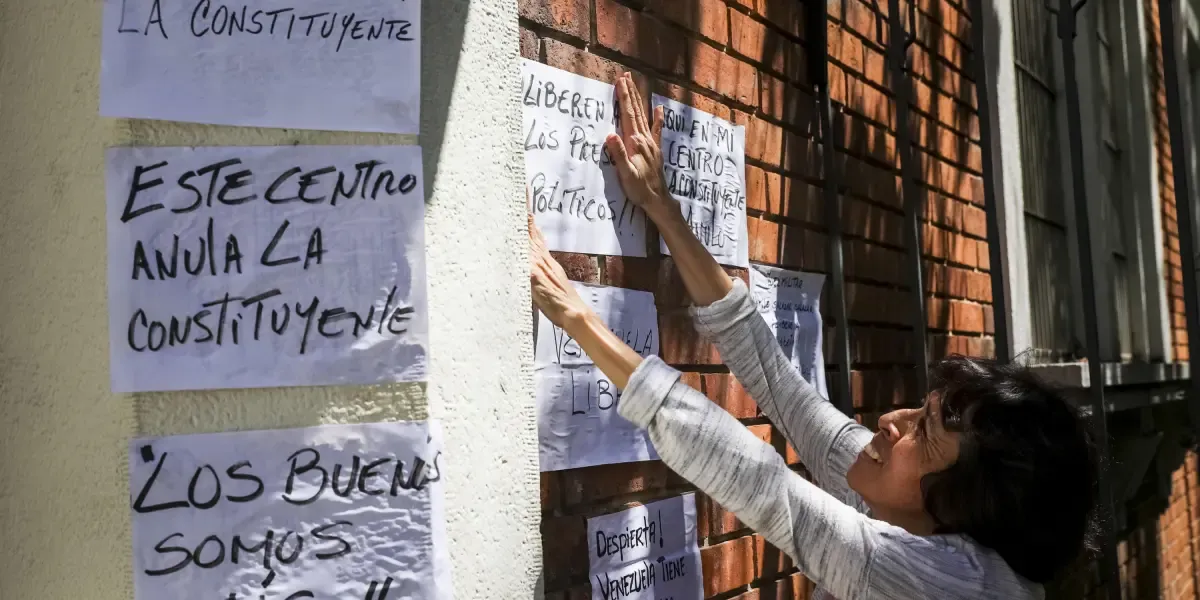 LA CONSTITUYENTE
ESTE CENTRO
ANULA LA
CONSTITUYENTE
"LOS BUENOS
SOMOS
¡LIBEREN A
LOS PRESOS
POLITICOS!!
AQUI EN MI
CENTRO
LA CONSTITUYENTE
VENEZUELA
DESPIERTA!
VENEZUELA TIENE